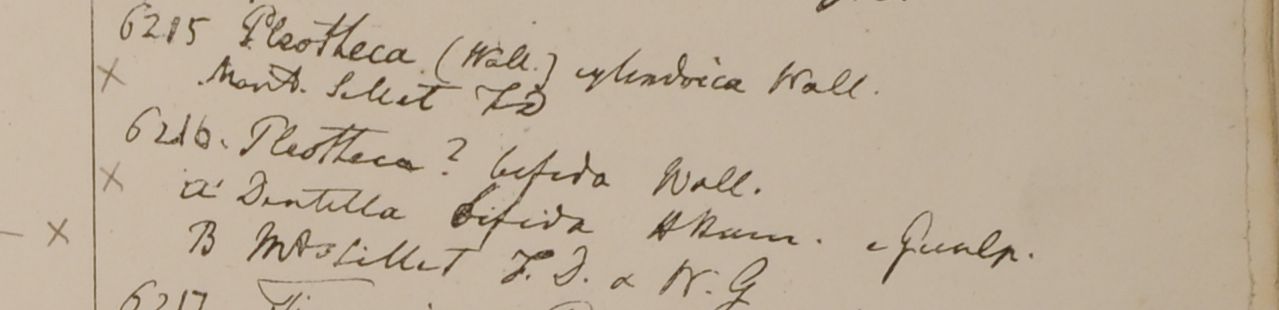 6215 Pleotheca (Wall.) cylindrica Wall.
Mont. Sillet F.D
6216. Pleotheca? bifida Wall.
a Dentella bifida HHam. e Gualp.
B Mts Sillet F.D. & W.G
6217